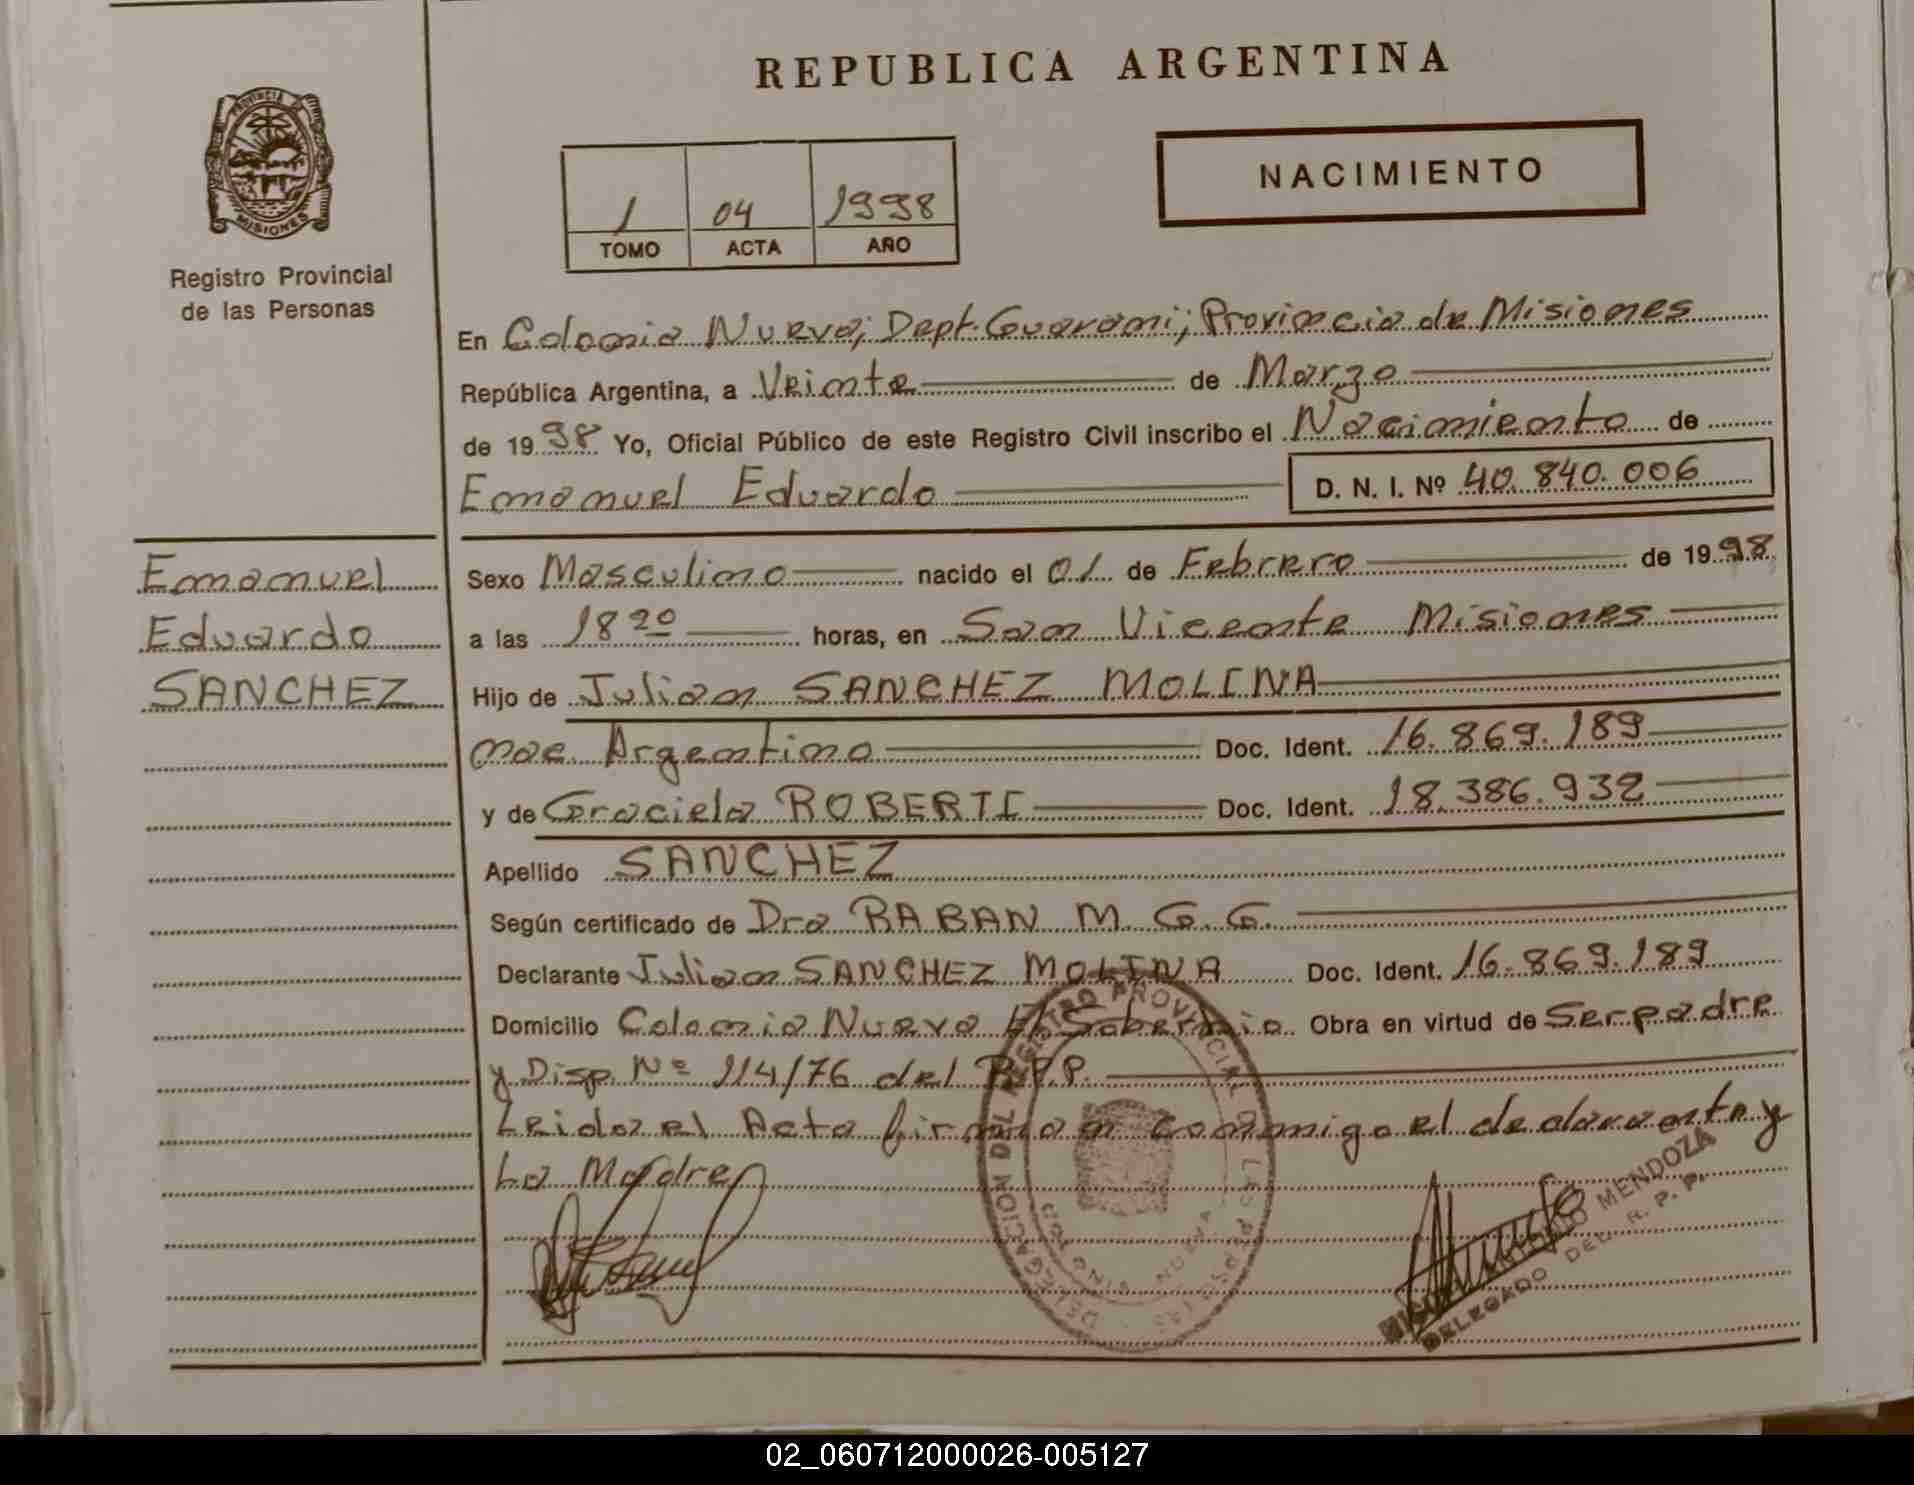 REPUBLICA ARGENTINA
PROVINCIA DE
MISIONES
Registro Provincial
de las Personas
1 04 1998
TOMO ACTA AÑO
NACIMIENTO
En Colonia Nueva; Dept. Guarani; Provincia de Misiones
República Argentina, a Veinte de Marzo
de 1998 Yo, Oficial Público de este Registro Civil inscribo el Nacimiento de
Emanuel Eduardo D. N. I. Nº 40.840.006
Emanuel
Eduardo
SANCHEZ
Sexo Masculino nacido el 01 de Febrero de 1998
a las 18 20 horas, en San Vicente Misiones
Hijo de Julian SANCHEZ MOLINA
nac. Argentino Doc. Ident. 16.869.189
y de Graciela ROBERTI Doc. Ident. 18.386.932
Apellido SANCHEZ
Según certificado de Dra RABAN M. G. G.
Declarante Julian SANCHEZ MOLINA Doc. Ident. 16.869.189
Domicilio Colonia Nueva El Soberbio Obra en virtud de Ser padre
y Disp. Nº 114/76 del R.P.P.
Leida el Acta firman conmigo el declarante y
La Madre
REGISTRO PROVINCIAL DE LAS PERSONAS
DELEGACION
NUEVA
MENDOZA
DELEGADO DEL R. P. P.
02_060712000026-005127